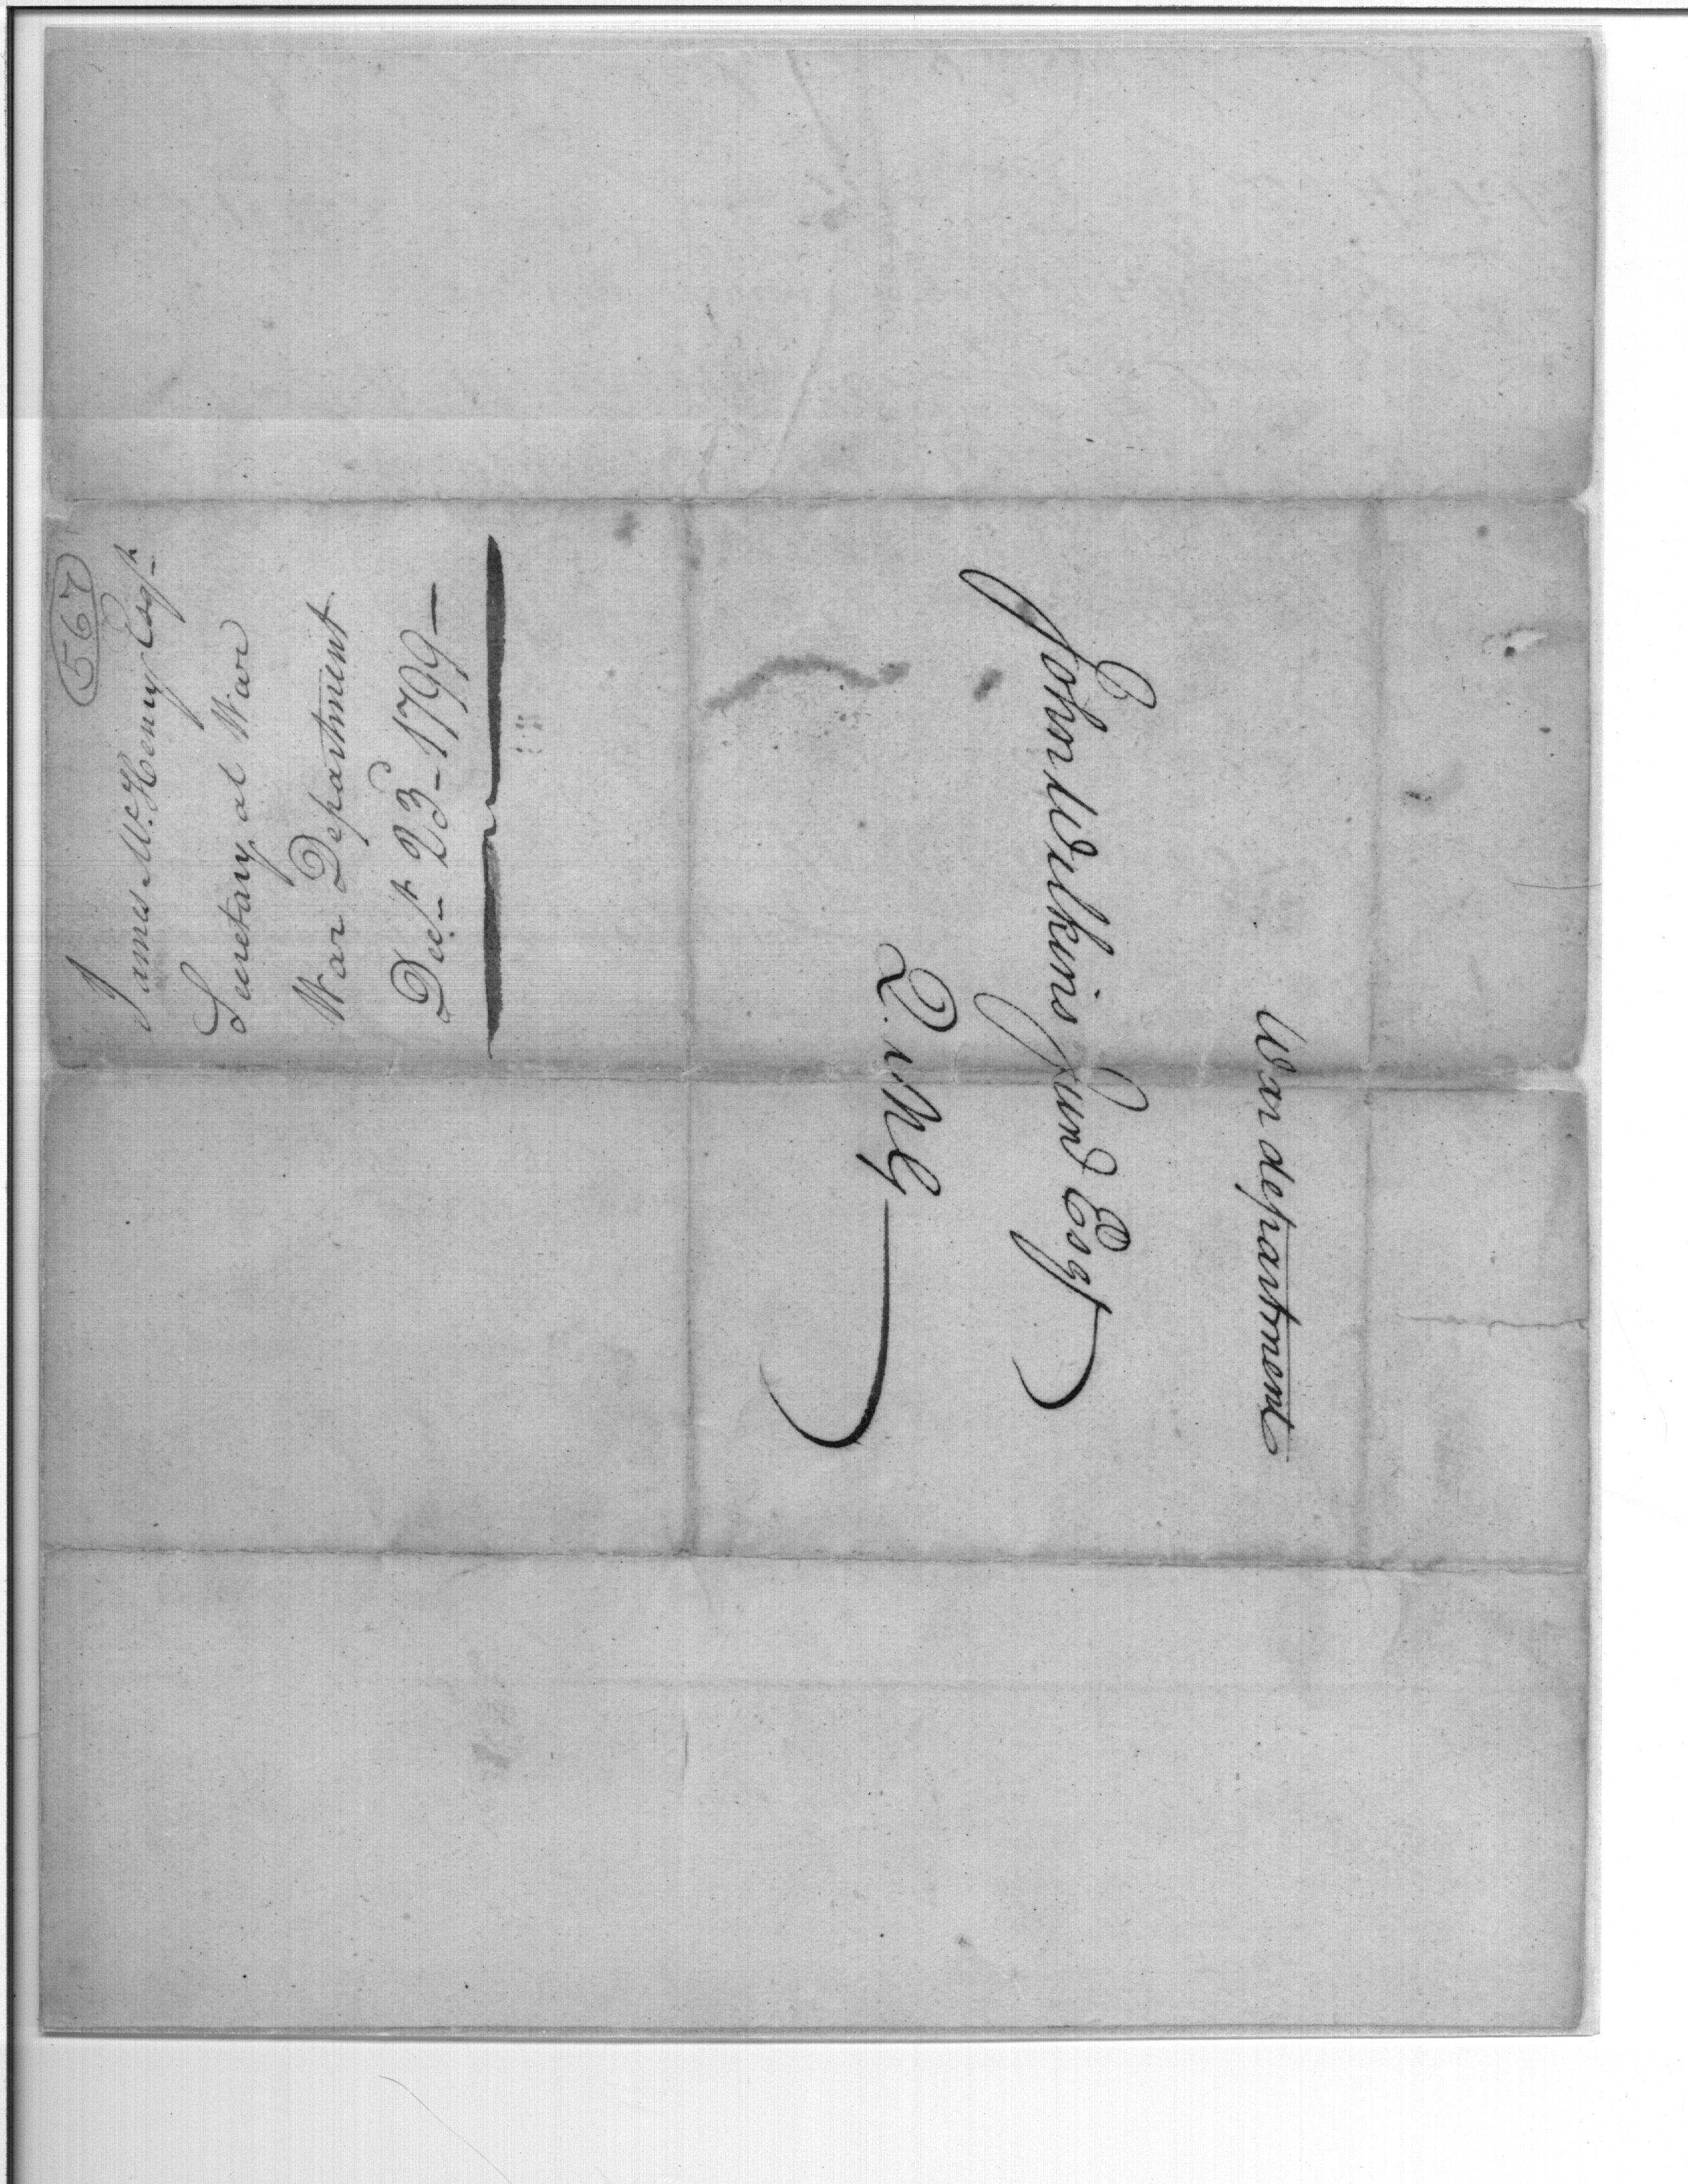 War department
John Wilkins Junr Esqr
Q. M. G
567
James McHenry Esqr
Secretary at War
War Department
Decr 23 - 1799 -